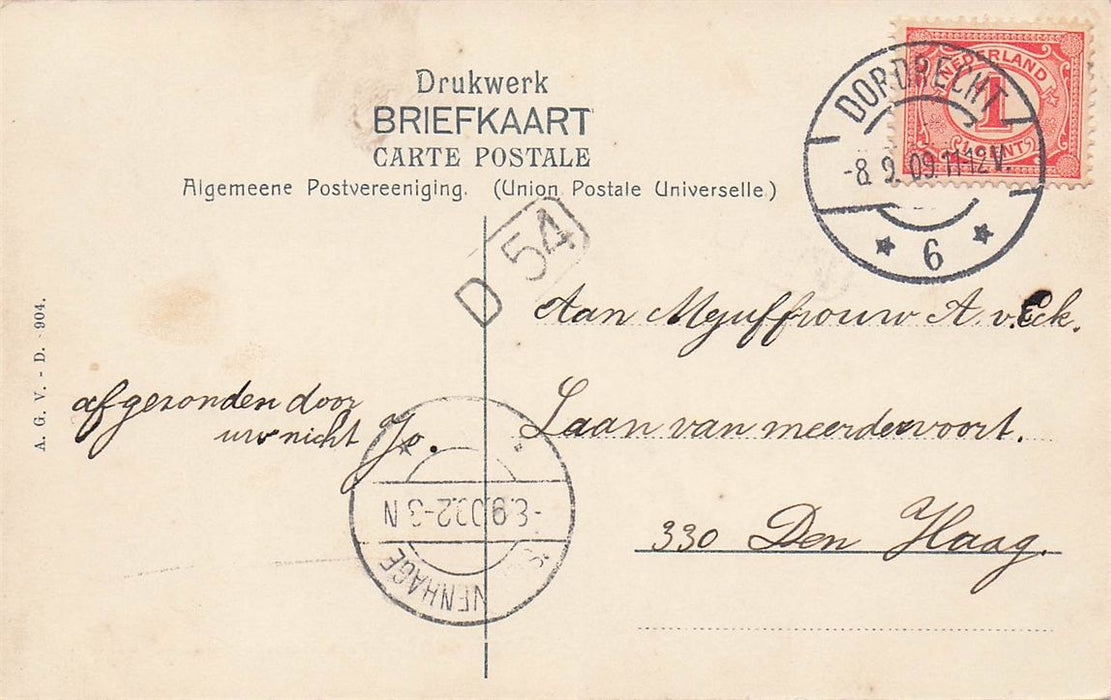 Drukwerk
BRIEFKAART
CARTE POSTALE
Algemeene Postvereeniging. (Union Postale Universelle.)
NEDERLAND
1
CENT
DORDRECHT
-8. 9. 09. 11-12 V.
6
D 54
A. G. V. - D. 904.
Aan Mejuffrouw A. v. Eck.
Laan van meerdervoort.
330 Den Haag.
afgezonden door
uw nicht Jo.
-8.9.09.2-3 N